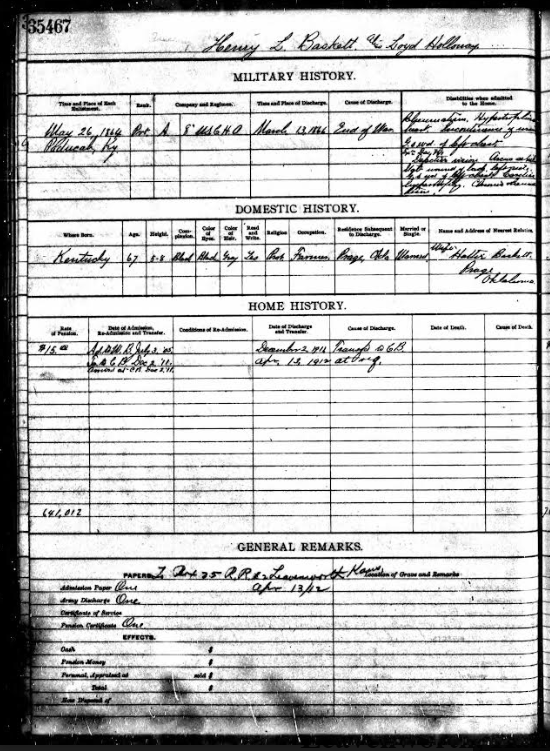 35467
Henry L. Baskett. Loyd Holloway
MILITARY HISTORY.
Time and Place of Each Enlistment.
Rank.
Company and Regiment.
Time and Place of Discharge.
Cause of Discharge.
Disabilities when admitted to the Home.
May 26, 1864
Paducah, Ky
Pvt
A 8" U.S.C.H.A
March 13, 1866
End of War
heart
DOMESTIC HISTORY.
Where Born.
Age.
Height.
Complexion.
Color of Eyes.
Color of Hair.
Read and Write.
Religion
Occupation.
Residence Subsequent to Discharge.
Married or Single.
Name and Address of Nearest Relative.
Kentucky
67
5-8
Black
Black
Gray
Yes
Prot
Farmer
Prague, Okla
Married
Wife
Hattie Baskett
Prague
Oklahoma
HOME HISTORY.
Rate of Pension.
Date of Admission, Re-Admission and Transfer.
Conditions of Re-Admission.
Date of Discharge and Transfer.
Cause of Discharge.
Date of Death.
Cause of Death.
$15.00
July 3, '05
December 2, 1911
Transfr to C.B.
Dec 2, '11
Apr. 13, 1912
at org.
641,012
GENERAL REMARKS.
PAPERS.
Box 25 R.R. #2 Leavenworth Kans.
Location of Grave and Remarks
Apr 13/12
Admission Paper One
Army Discharge One
Certificate of Service
Pension Certificate One
EFFECTS.
Cash $
Pension Money $
Personal, Appraised at sold $
Total $
How Disposed of